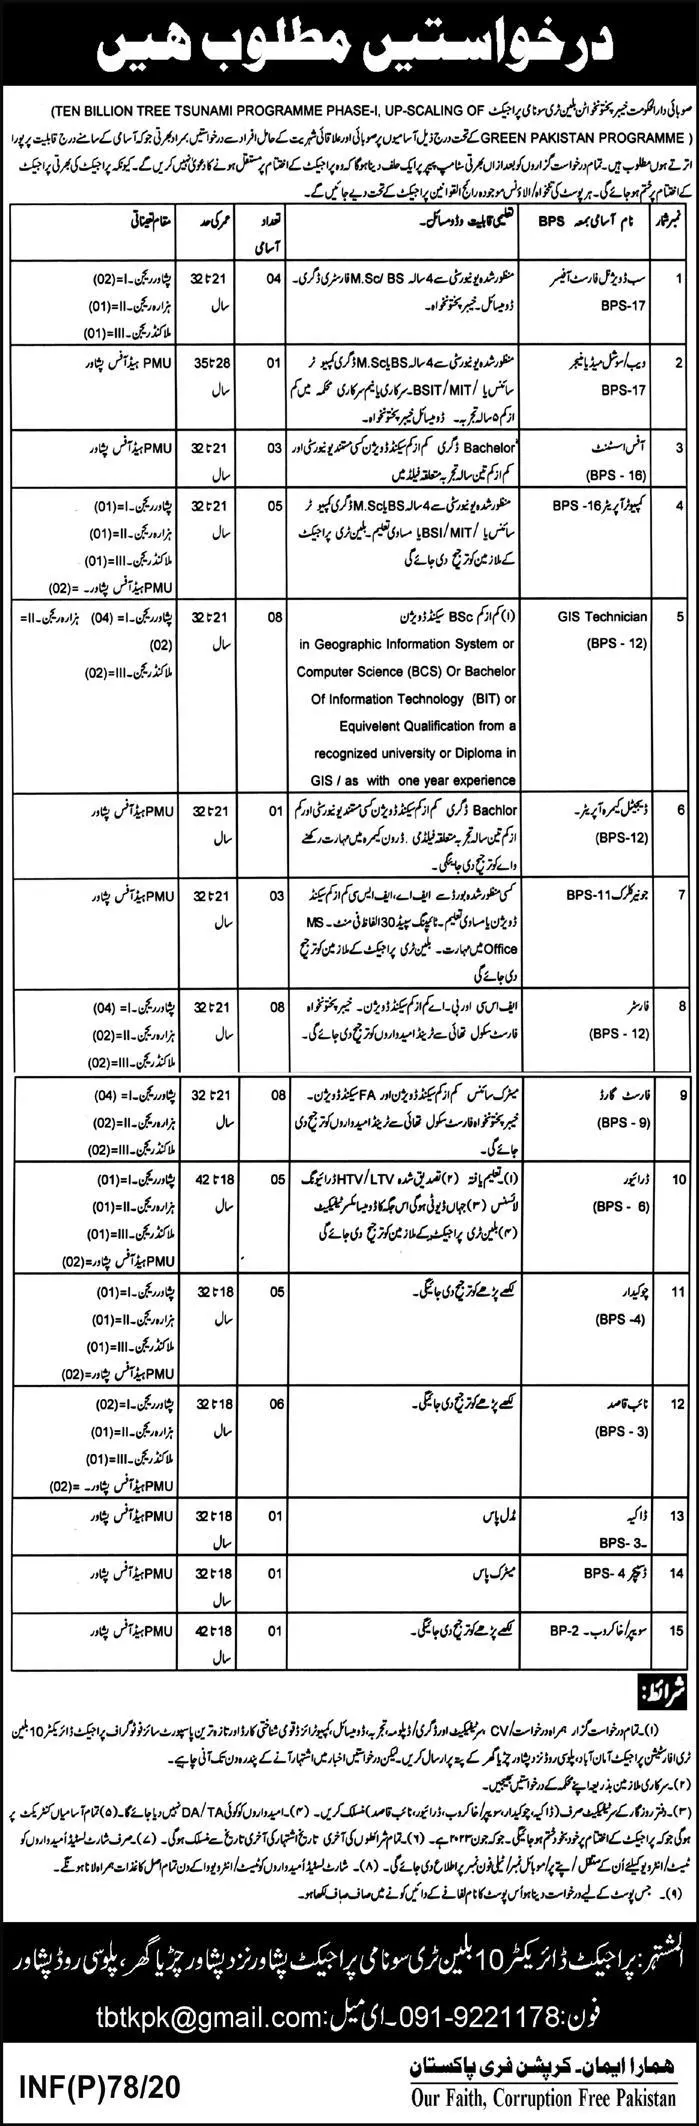 درخواستیں مطلوب ہیں
صوبائی دارالحکومت خیبر پختونخوا ٹن بلین ٹری سونامی پراجیکٹ TEN BILLION TREE TSUNAMI PROGRAMME PHASE-I, UP-SCALING OF)
GREEN PAKISTAN PROGRAMME ) کے تحت درج ذیل آسامیوں پر صوبائی اور علاقائی شہریت کے حامل افراد سے درخواستیں بمراد بھرتی جو کہ آسامی کے سامنے درج قابلیت پر پورا
اترتے ہوں مطلوب ہیں۔ تمام درخواست گزاروں کو بعد از اں بھرتی سٹامپ پیپر پر ایک حلف دینا ہوگا کہ وہ پراجیکٹ کے اختتام پر مستقل ہونے کا دعویٰ نہیں کریں گے۔ کیونکہ پراجیکٹ کی بھرتی پراجیکٹ
کے اختتام پر ختم ہو جائے گی۔ ہر پوسٹ کی تنخواہ/الاؤنس موجودہ رائج القوانین پراجیکٹ کے تحت دیے جائیں گے۔
نمبر شمار نام آسامی بمعہ BPS تعلیمی قابلیت و ڈومیسائل۔ تعداد آسامی عمر کی حد مقام تعیناتی
1 سب ڈویژنل فارسٹ آفیسر BPS-17 منظور شدہ یونیورسٹی سے 4 سالہ M.Sc/ BS فارسٹری ڈگری۔ ڈومیسائل۔ خیبر پختونخواہ۔ 04 21 تا 32 سال پشاور ریجن۔I=(02) ہزارہ ریجن۔II=(01) ملاکنڈ ریجن۔III=(01)
2 ویب/سوشل میڈیا منیجر BPS-17 منظور شدہ یونیورسٹی سے 4 سالہ BS یا M.Sc ڈگری کمپیوٹر سائنس یا /BSIT/MIT۔ سرکاری یا نیم سرکاری محکمہ میں کم از کم ۵ سالہ تجربہ۔ ڈومیسائل خیبر پختونخواہ۔ 01 28 تا 35 سال PMU ہیڈ آفس پشاور
3 آفس اسسٹنٹ (BPS - 16) Bachelor ڈگری کم از کم سیکنڈ ڈویژن کسی مستند یونیورسٹی اور کم از کم تین سالہ تجربہ متعلقہ فیلڈ میں 03 21 تا 32 سال PMU ہیڈ آفس پشاور
4 کمپیوٹر آپریٹر BPS -16 منظور شدہ یونیورسٹی سے 4 سالہ BS یا M.Sc ڈگری کمپیوٹر سائنس یا /BSI/MIT یا مساوی تعلیم۔ بلین ٹری پراجیکٹ کے ملازمین کو ترجیح دی جائے گی 05 21 تا 32 سال پشاور ریجن۔I=(01) ہزارہ ریجن۔II=(01) ملاکنڈ ریجن۔III=(01) PMU ہیڈ آفس پشاور۔ =(02)
5 GIS Technician (BPS - 12) (۱) کم از کم BSc سیکنڈ ڈویژن
in Geographic Information System or
Computer Science (BCS) Or Bachelor
Of Information Technology (BIT) or
Equivelent Qualification from a
recognized university or Diploma in
GIS / as with one year experience
08 21 تا 32 سال پشاور ریجن۔I= (04) ہزارہ ریجن۔II= (02) ملاکنڈ ریجن۔III=(02)
6 ڈیجیٹل کیمرہ آپریٹر۔ (BPS-12) Bachlor ڈگری کم از کم سیکنڈ ڈویژن کسی مستند یونیورسٹی اور کم از کم تین سالہ تجربہ متعلقہ فیلڈ میں۔ ڈرون کیمرہ میں مہارت رکھنے والے کو ترجیح دی جائیگی۔ 01 21 تا 32 سال PMU ہیڈ آفس پشاور
7 جونیئر کلرک BPS-11 کسی منظور شدہ بورڈ سے ایف اے، ایف ایس سی کم از کم سیکنڈ ڈویژن یا مساوی تعلیم۔ ٹائپنگ سپیڈ 30 الفاظ فی منٹ۔ MS Office میں مہارت۔ بلین ٹری پراجیکٹ کے ملازمین کو ترجیح دی جائے گی 03 21 تا 32 سال PMU ہیڈ آفس پشاور
8 فارسٹر (BPS - 12) ایف اس سی اور بی۔اے کم از کم سیکنڈ ڈویژن۔ خیبر پختونخواہ فارسٹ سکول تھائی سے ٹرینڈ امیدواروں کو ترجیح دی جائے گی۔ 08 21 تا 32 سال پشاور ریجن۔I= (04) ہزارہ ریجن۔II=(02) ملاکنڈ ریجن۔III=(02)
9 فارسٹ گارڈ (BPS - 9) میٹرک سائنس کم از کم سیکنڈ ڈویژن اور FA سیکنڈ ڈویژن۔ خیبر پختونخواہ فارسٹ سکول تھائی سے ٹرینڈ امیدواروں کو ترجیح دی جائے گی۔ 08 21 تا 32 سال پشاور ریجن۔I= (04) ہزارہ ریجن۔II=(02) ملاکنڈ ریجن۔III=(02)
10 ڈرائیور (BPS - 6) (۱) تعلیم یافتہ (۲) تصدیق شدہ HTV/LTV ڈرائیونگ لائسنس (۳) جہاں ڈیوٹی ہوگی اس جگہ کا ڈومیسائل سرٹیفکیٹ (۴) بلین ٹری پراجیکٹ کے ملازمین کو ترجیح دی جائے گی 05 18 تا 42 سال پشاور ریجن۔I=(01) ہزارہ ریجن۔II=(01) ملاکنڈ ریجن۔III=(01) PMU ہیڈ آفس پشاور=(02)
11 چوکیدار (BPS -4) لکھے پڑھے کو ترجیح دی جائیگی۔ 05 18 تا 32 سال پشاور ریجن۔I=(01) ہزارہ ریجن۔II=(01) ملاکنڈ ریجن۔III=(01) PMU ہیڈ آفس پشاور=(02)
12 نائب قاصد (BPS - 3) لکھے پڑھے کو ترجیح دی جائیگی۔ 06 18 تا 32 سال پشاور ریجن۔I=(02) ہزارہ ریجن۔II=(01) ملاکنڈ ریجن۔III=(01) PMU ہیڈ آفس پشاور۔ =(02)
13 ڈاکیہ BPS- 3۔ مڈل پاس 01 18 تا 32 سال PMU ہیڈ آفس پشاور
14 ڈسپیچر BPS- 4 میٹرک پاس 01 18 تا 32 سال PMU ہیڈ آفس پشاور
15 سویپر/خاکروب۔ BP-2 لکھے پڑھے کو ترجیح دی جائیگی۔ 01 18 تا 42 سال PMU ہیڈ آفس پشاور
شرائط:
(۱)۔ تمام درخواست گزار ہمراہ درخواست/CV سرٹیفکیٹ اور ڈگری/ڈپلومہ، تجربہ، ڈومیسائل، کمپیوٹرائزڈ قومی شناختی کارڈ اور تازہ ترین پاسپورٹ سائز فوٹو گراف پراجیکٹ ڈائریکٹر 10 بلین
ٹری افارسٹیشن پراجیکٹ آمان آباد، پلوسی روڈ نزد پشاور چڑیا گھر کے پتہ پر ارسال کریں۔ لیکن درخواستیں اخبار میں اشتہار آنے کے پندرہ دن تک آنی چاہیے۔
(۲)۔ سرکاری ملازمین بذریعہ اپنے محکمہ کے درخواستیں بھیجیں۔
(۳)۔ دفتر روزگار کے سرٹیفکیٹ صرف (ڈاکیہ، چوکیدار، سویپر/خاکروب، ڈرائیور، نائب قاصد) منسلک کریں۔ (۴)۔ امیدواروں کو کوئی DA/TA نہیں دیا جائے گا۔ (۵) تمام آسامیاں کنٹریکٹ پر
ہوگی جو کہ پراجیکٹ کے اختتام پر خود بخود ختم ہو جائیگی۔ جو کہ جون ۲۰۲۳ ہے۔ (۶) تمام شرائط لوں کی آخری تاریخ اشتہار کی آخری تاریخ سے منسلک ہوگی۔ (۷)۔ صرف شارٹ لسٹیڈ امیدواروں کو
ٹیسٹ/انٹرویو کیلئے اُن کے مستقل/پتے پر/موبائل نمبر/ٹیلی فون نمبر پر اطلاع دی جائے گی۔ (۸)۔ شارٹ لسٹیڈ امیدواروں کو ٹیسٹ/انٹرویو والے دن تمام اصل کاغذات ہمراہ لانا ہونگے۔
(۹)۔ جس پوسٹ کے لیے درخواست دینا ہو اُس پوسٹ کا نام لفافے کے دائیں کونے میں صاف صاف لکھا ہو۔
المشتہر: پراجیکٹ ڈائریکٹر 10 بلین ٹری سونامی پراجیکٹ پشاور نزد پشاور چڑیا گھر، پلوسی روڈ پشاور
فون: 091-9221178۔ ای میل: tbtkpk@gmail.com
ہمارا ایمان۔ کرپشن فری پاکستان
Our Faith, Corruption Free Pakistan
INF(P)78/20